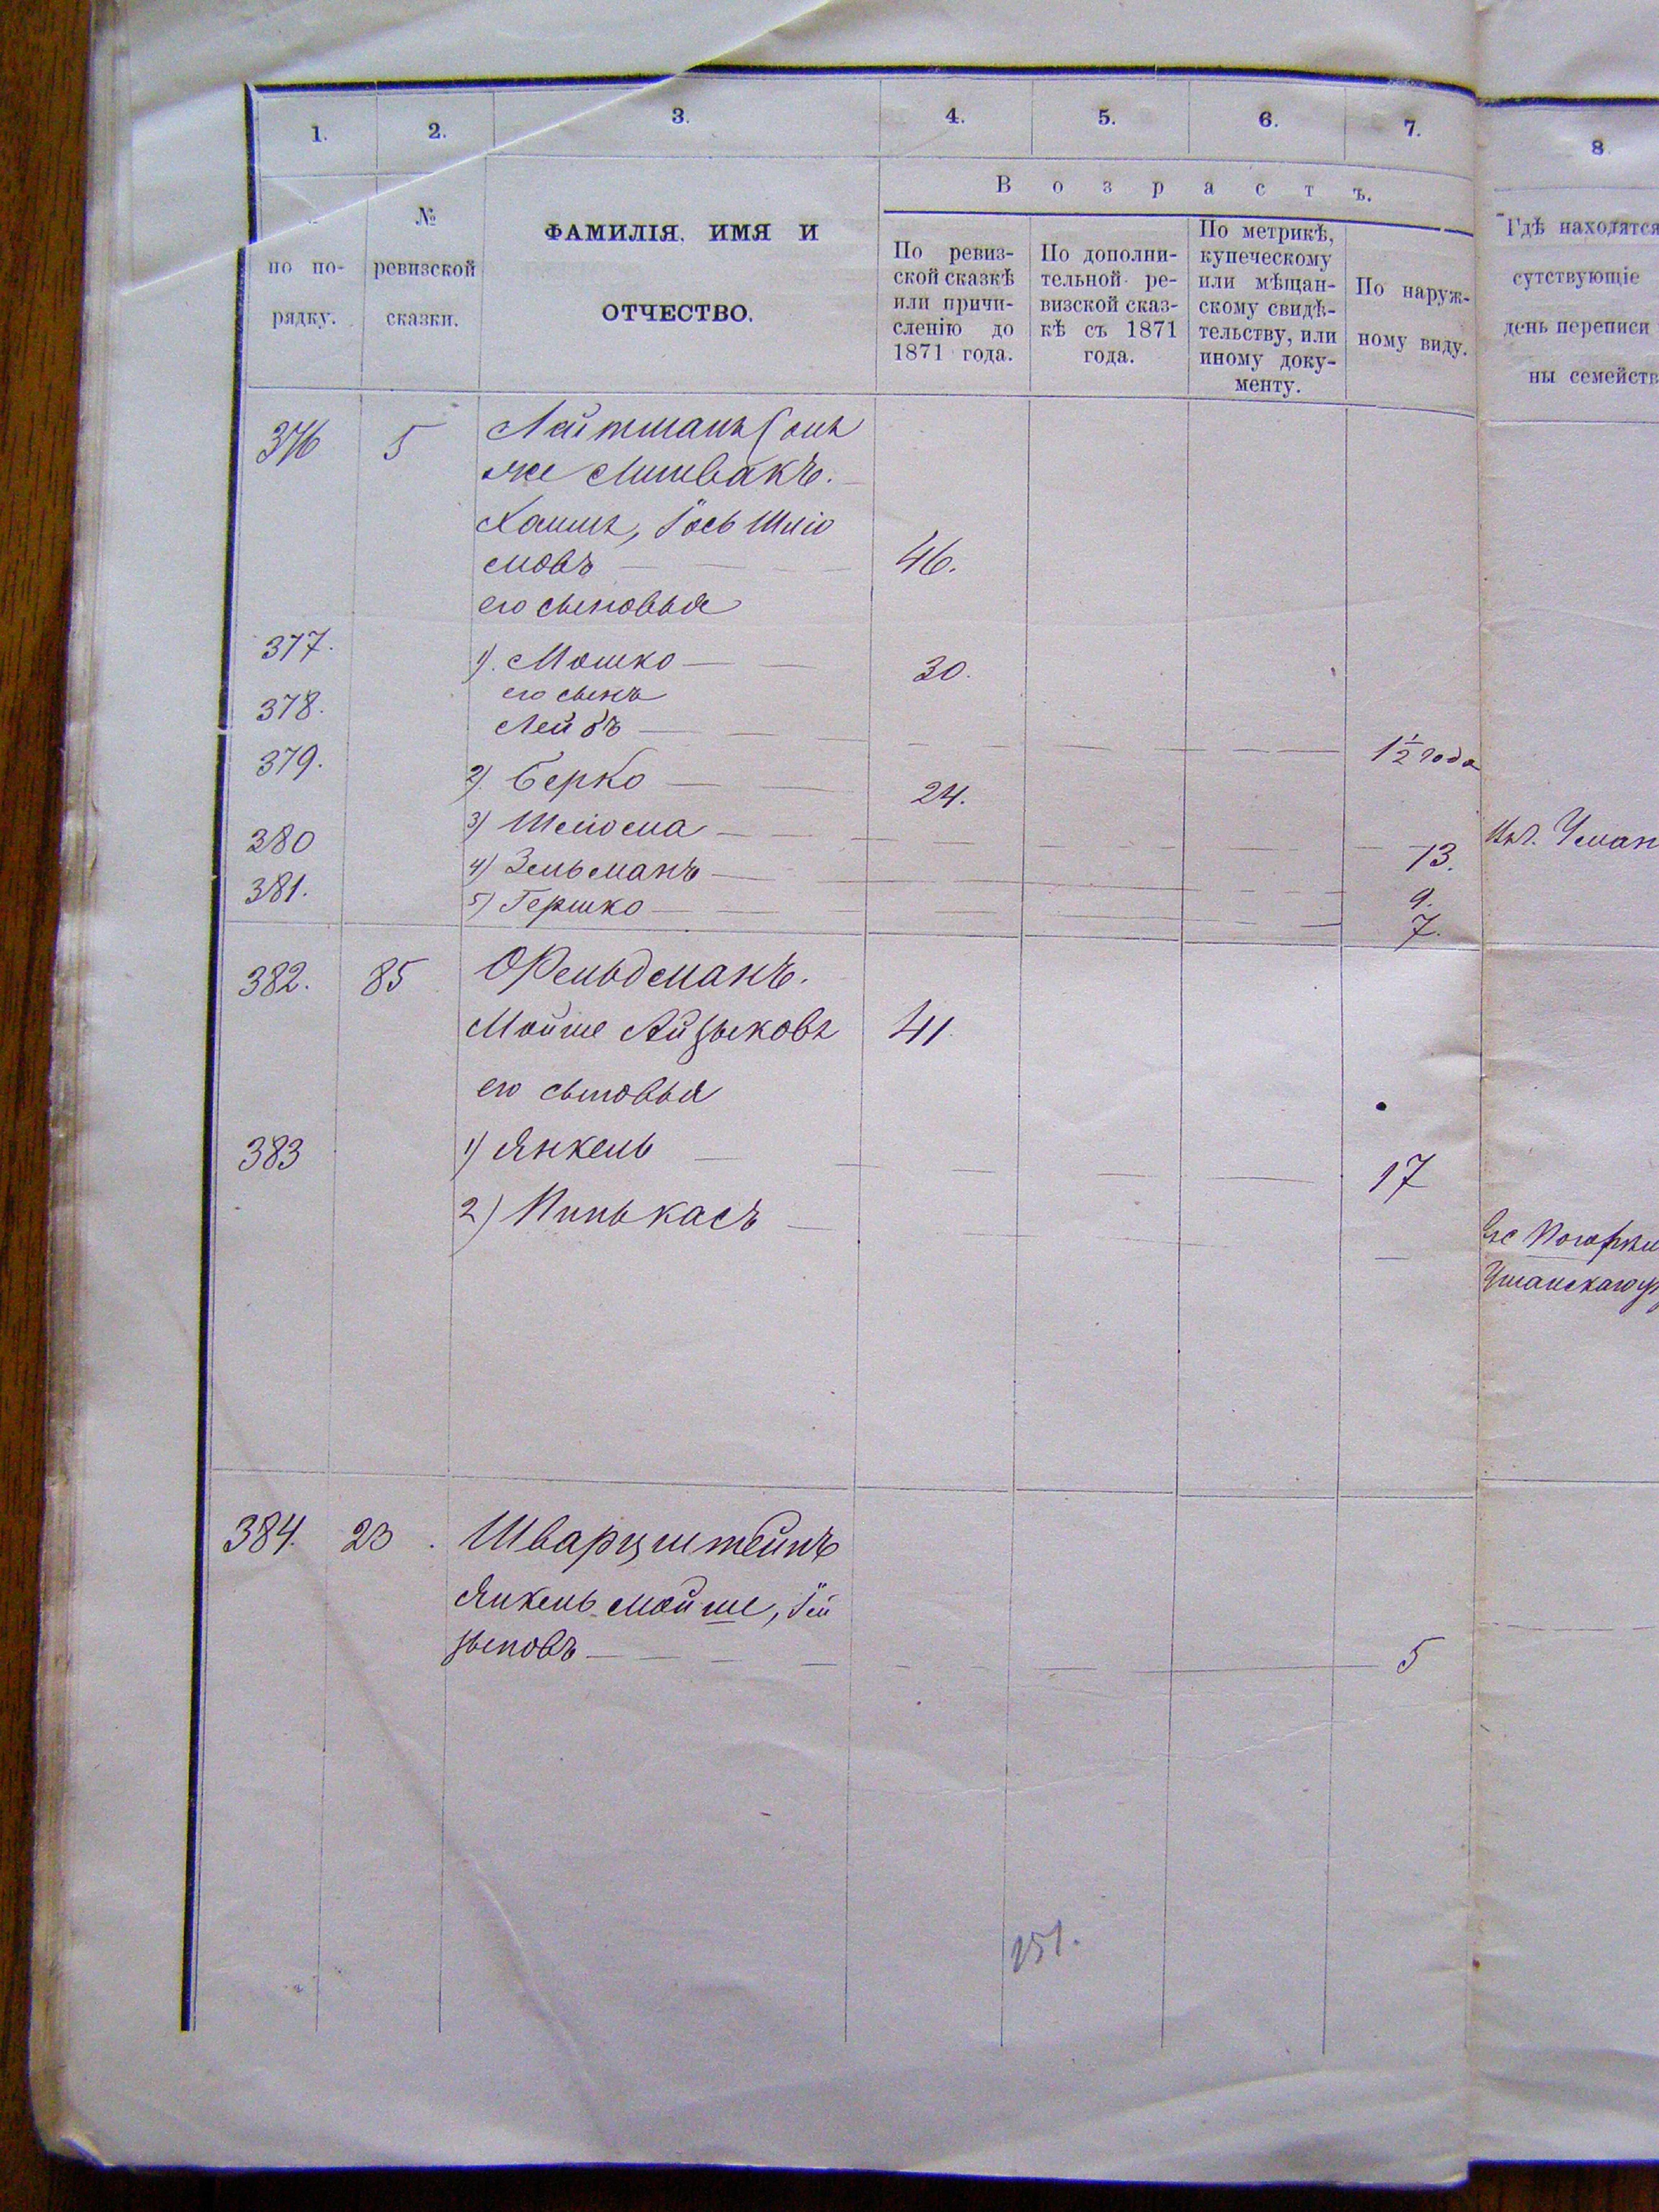 1. 2. 3. 4. 5. 6. 7. 8
Возрастъ.
по по-
рядку.
№
ревизской
сказки.
ФАМИЛІЯ, ИМЯ И
ОТЧЕСТВО.
По ревиз-
ской сказкѣ
или причи-
сленію до
1871 года.
По дополни-
тельной ре-
визской сказ-
кѣ съ 1871
года.
По метрикѣ,
купеческому
или мѣщан-
скому свидѣ-
тельству, или
иному доку-
менту.
По наруж-
ному виду.
Гдѣ находятся
сутствующіе
день переписи
ны семейств
376 5 Лайтманъ (онъ
же Литвакъ.
Хаимъ, Іось Шліо
мовъ 46.
его сыновья
377. 1). Мошко 30.
его сынъ
378. Лейбъ 1½ года
379. 2). Берко 24.
380 3) Шліома 13. Уман
381. 4) Зельманъ 9.
5) Гершко 7.
382. 85 Фельдманъ.
Мойше Айзыковъ 41
его сыновья
383 1) Янкель 17
2) Пинькасъ
Уманскаго
384. 23. Шварцштейнъ
Янкель Мойше, Іей
зыковъ 5
151.